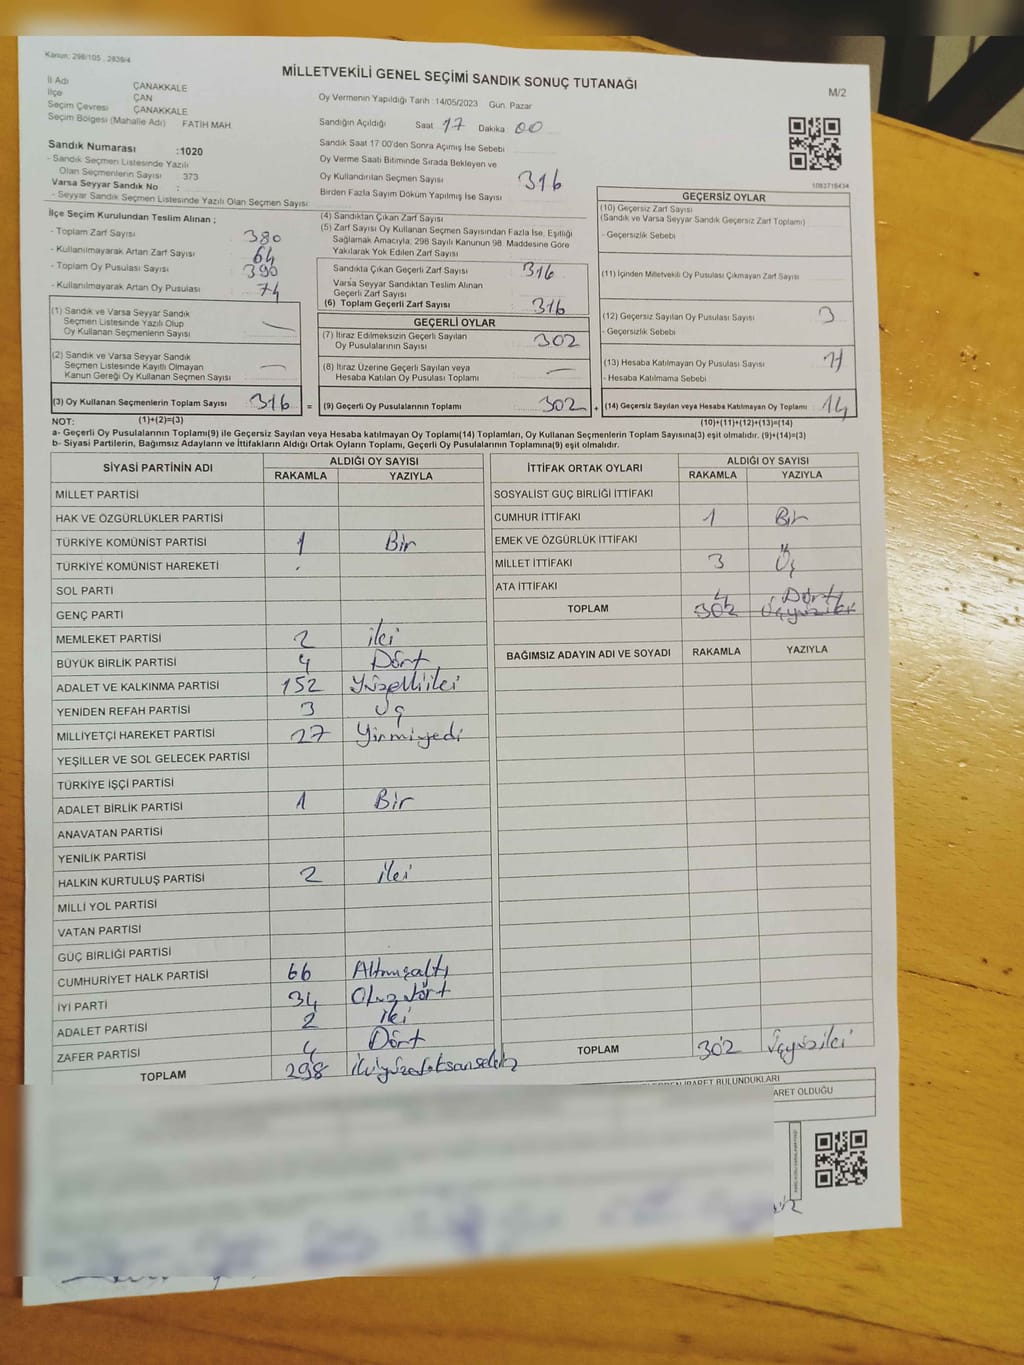 Kanun: 298/105 , 2839/4
MİLLETVEKİLİ GENEL SEÇİMİ SANDIK SONUÇ TUTANAĞI
M/2
İl Adı ÇANAKKALE
İlçe ÇAN
Seçim Çevresi ÇANAKKALE
Seçim Bölgesi (Mahalle Adı) FATİH MAH.
Sandık Numarası :1020
- Sandık Seçmen Listesinde Yazılı
Olan Seçmenlerin Sayısı : 373
Varsa Seyyar Sandık No :
- Seyyar Sandık Seçmen Listesinde Yazılı Olan Seçmen Sayısı:
Oy Vermenin Yapıldığı Tarih :14/05/2023 Gün: Pazar
Sandığın Açıldığı Saat 17 Dakika : 00
Sandık Saat 17:00'den Sonra Açımış İse Sebebi
Oy Verme Saati Bitiminde Sırada Bekleyen ve
Oy Kullandırılan Seçmen Sayısı 316
Birden Fazla Sayım Döküm Yapılmış İse Sayısı
1083718434
İlçe Seçim Kurulundan Teslim Alınan ;
- Toplam Zarf Sayısı 380
- Kullanılmayarak Artan Zarf Sayısı 64
- Toplam Oy Pusulası Sayısı 390
- Kullanılmayarak Artan Oy Pusulası 74
(1) Sandık ve Varsa Seyyar Sandık
Seçmen Listesinde Yazılı Olup
Oy Kullanan Seçmenlerin Sayısı —
(2) Sandık ve Varsa Seyyar Sandık
Seçmen Listesinde Kayıtlı Olmayan
Kanun Gereği Oy Kullanan Seçmen Sayısı —
(3) Oy Kullanan Seçmenlerin Toplam Sayısı 316 =
(4) Sandıktan Çıkan Zarf Sayısı
(5) Zarf Sayısı Oy Kullanan Seçmen Sayısından Fazla İse, Eşitliği
Sağlamak Amacıyla; 298 Sayılı Kanunun 98. Maddesine Göre
Yakılarak Yok Edilen Zarf Sayısı
Sandıkta Çıkan Geçerli Zarf Sayısı 316
Varsa Seyyar Sandıktan Teslim Alınan
Geçerli Zarf Sayısı
(6) Toplam Geçerli Zarf Sayısı 316
GEÇERLİ OYLAR
(7) İtiraz Edilmeksizin Geçerli Sayılan
Oy Pusulalarının Sayısı 302
(8) İtiraz Üzerine Geçerli Sayılan veya
Hesaba Katılan Oy Pusulası Toplamı —
(9) Geçerli Oy Pusulalarının Toplamı 302 +
GEÇERSİZ OYLAR
(10) Geçersiz Zarf Sayısı
(Sandık ve Varsa Seyyar Sandık Geçersiz Zarf Toplamı)
- Geçersizlik Sebebi
(11) İçinden Milletvekili Oy Pusulası Çıkmayan Zarf Sayısı
(12) Geçersiz Sayılan Oy Pusulası Sayısı 3
- Geçersizlik Sebebi
(13) Hesaba Katılmayan Oy Pusulası Sayısı
- Hesaba Katılmama Sebebi
(14) Geçersiz Sayılan veya Hesaba Katılmayan Oy Toplamı 14
NOT: (1)+(2)=(3) (10)+(11)+(12)+(13)=(14)
a- Geçerli Oy Pusulalarının Toplamı(9) ile Geçersiz Sayılan veya Hesaba katılmayan Oy Toplamı(14) Toplamları, Oy Kullanan Seçmenlerin Toplam Sayısına(3) eşit olmalıdır. (9)+(14)=(3)
b- Siyasi Partilerin, Bağımsız Adayların ve İttifakların Aldığı Ortak Oyların Toplamı, Geçerli Oyların Toplamına(9) eşit olmalıdır.
SİYASİ PARTİNİN ADI ALDIĞI OY SAYISI
RAKAMLA YAZIYLA
MİLLET PARTİSİ
HAK VE ÖZGÜRLÜKLER PARTİSİ
TÜRKİYE KOMÜNİST PARTİSİ 1 Bir
TÜRKİYE KOMÜNİST HAREKETİ
SOL PARTİ
GENÇ PARTİ
MEMLEKET PARTİSİ 2 iki
BÜYÜK BİRLİK PARTİSİ 4 Dört
ADALET VE KALKINMA PARTİSİ 152 Yüzelliiki
YENİDEN REFAH PARTİSİ 3 Üç
MİLLİYETÇİ HAREKET PARTİSİ 27 Yirmiyedi
YEŞİLLER VE SOL GELECEK PARTİSİ
TÜRKİYE İŞÇİ PARTİSİ
ADALET BİRLİK PARTİSİ 1 Bir
ANAVATAN PARTİSİ
YENİLİK PARTİSİ
HALKIN KURTULUŞ PARTİSİ 2 iki
MİLLİ YOL PARTİSİ
VATAN PARTİSİ
GÜÇ BİRLİĞİ PARTİSİ
CUMHURİYET HALK PARTİSİ 66 Altmışaltı
İYİ PARTİ 34 Otuzdört
ADALET PARTİSİ 2 iki
ZAFER PARTİSİ 4 Dört
TOPLAM 298 ikiyüzdoksansekiz
İTTİFAK ORTAK OYLARI ALDIĞI OY SAYISI
RAKAMLA YAZIYLA
SOSYALİST GÜÇ BİRLİĞİ İTTİFAKI
CUMHUR İTTİFAKI 1 Bir
EMEK VE ÖZGÜRLÜK İTTİFAKI
MİLLET İTTİFAKI 3 Üç
ATA İTTİFAKI
4 Dört
TOPLAM 302 Üçyüziki
BAĞIMSIZ ADAYIN ADI VE SOYADI RAKAMLA YAZIYLA
TOPLAM 302 Üçyüziki
İBARET BULUNDUKLARI
ARET OLDUĞU